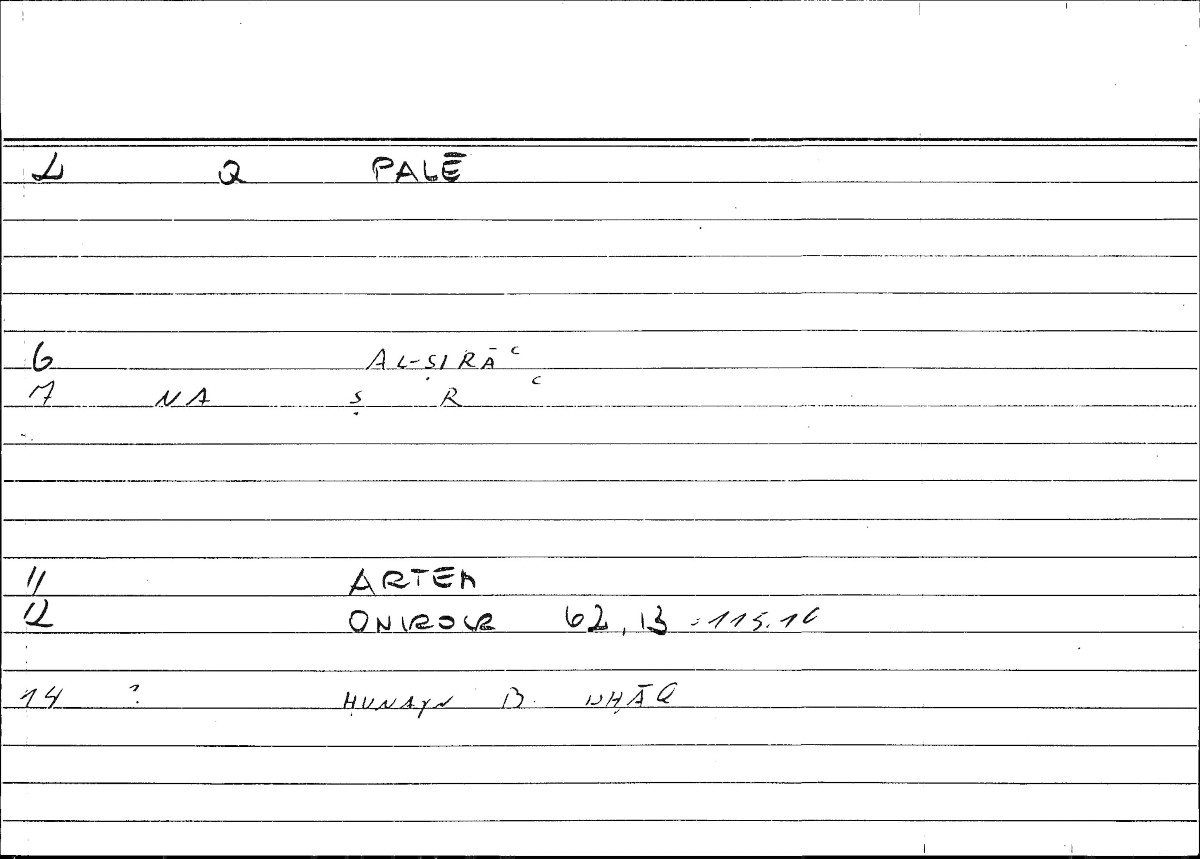 1 Q PALĒ
6 AL-ṢIRĀʿ
7 NA Ṣ R ʿ
11 ARTEM
12 ONIROCR 62,13 = 115.16
14 ? ḤUNAYN B. ISḤĀQ